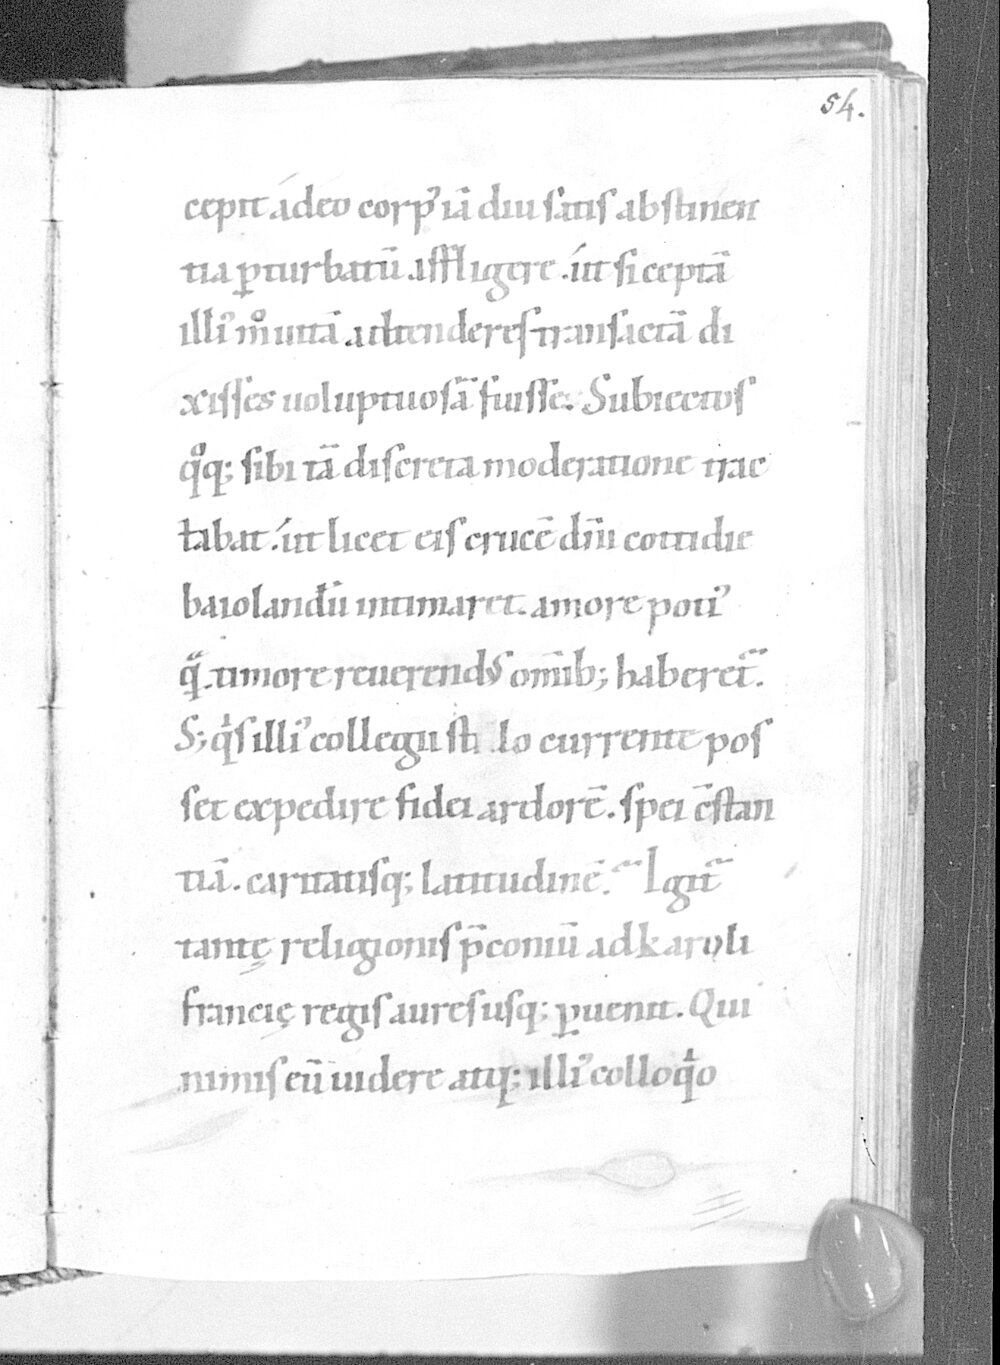 54.
cepit ádeo corpꝰ iā diu satis abstinen
tia ꝑturbatū affligere . út si ceptā
illiꝰ mͦ uitā adtenderes transactā di
xisses uoluptuosā fuisse. Subiectos
qͦq; sibi tā discreta moderatione trac
tabat . út licet eis crucē dn̄i cottidie
baiolandā intimaret . amore potiꝰ
qͣ̄ . timore reuerendus om̄ib; haberet᷑.
S; qͥs illiꝰ collegii sti lo currente pos
set expedire fidei ardorē . spei c̄stan
tiā . caritatisq; latitudinē . Igit᷑
tantę religionis p̄coniū ad karoli
francię regis aures usq; ꝑuenit . Qui
nimis eū uidere atq; illiꝰ colloqͥo